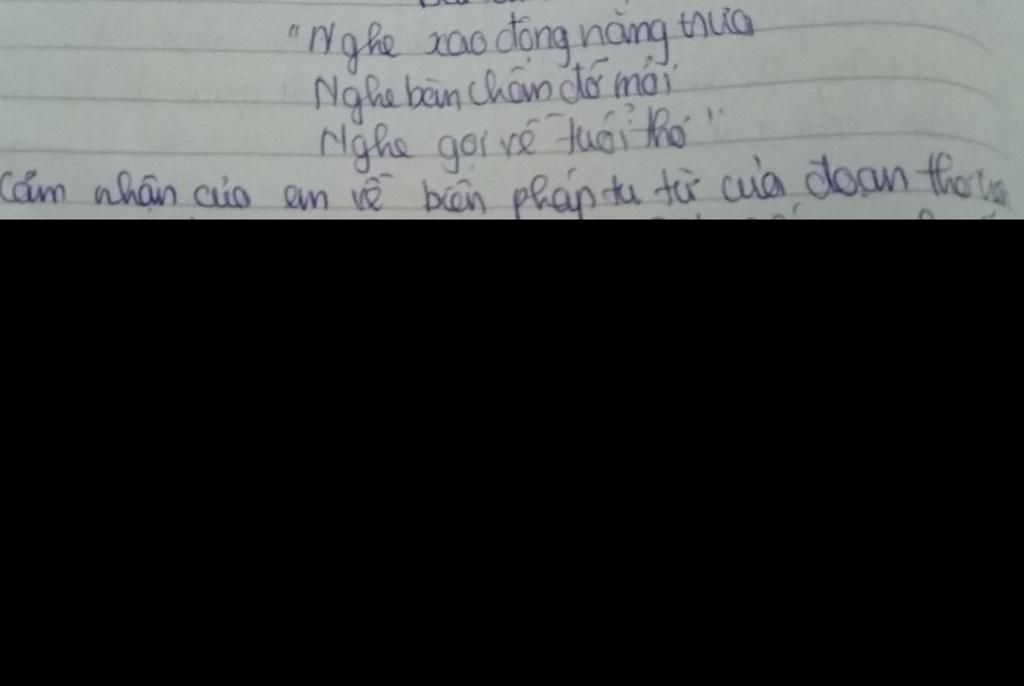 "Nghe xao động nắng trưa
Nghe bàn chân đỡ mỏi
Nghe gọi về tuổi thơ"
Cảm nhận của em về biện pháp tu từ của đoạn thơ